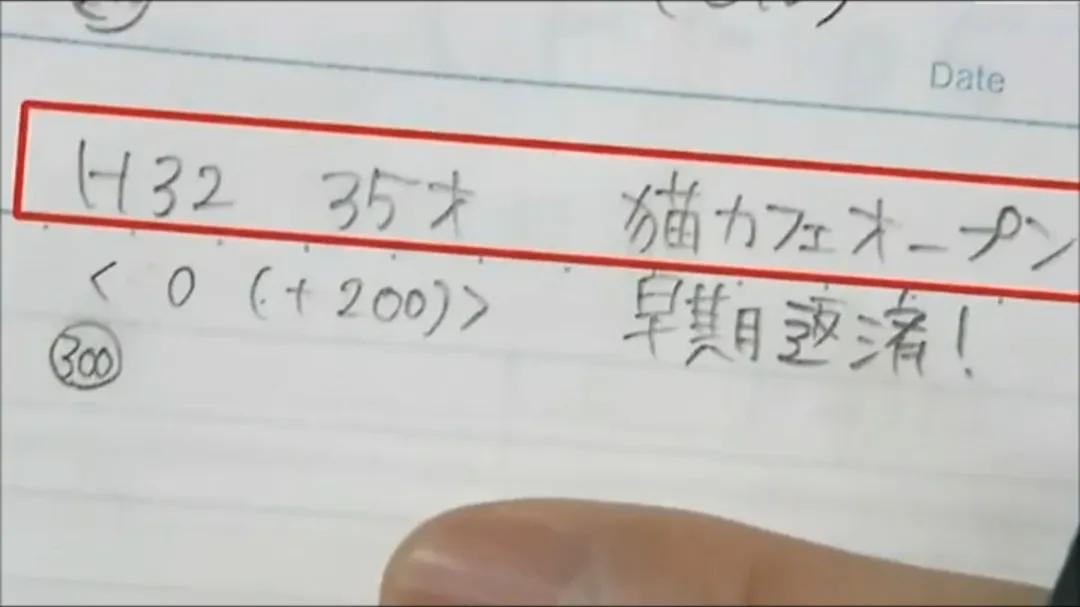 Date
H32 35才 猫カフェオープン
< 0 (+200)> 早期返済!
300